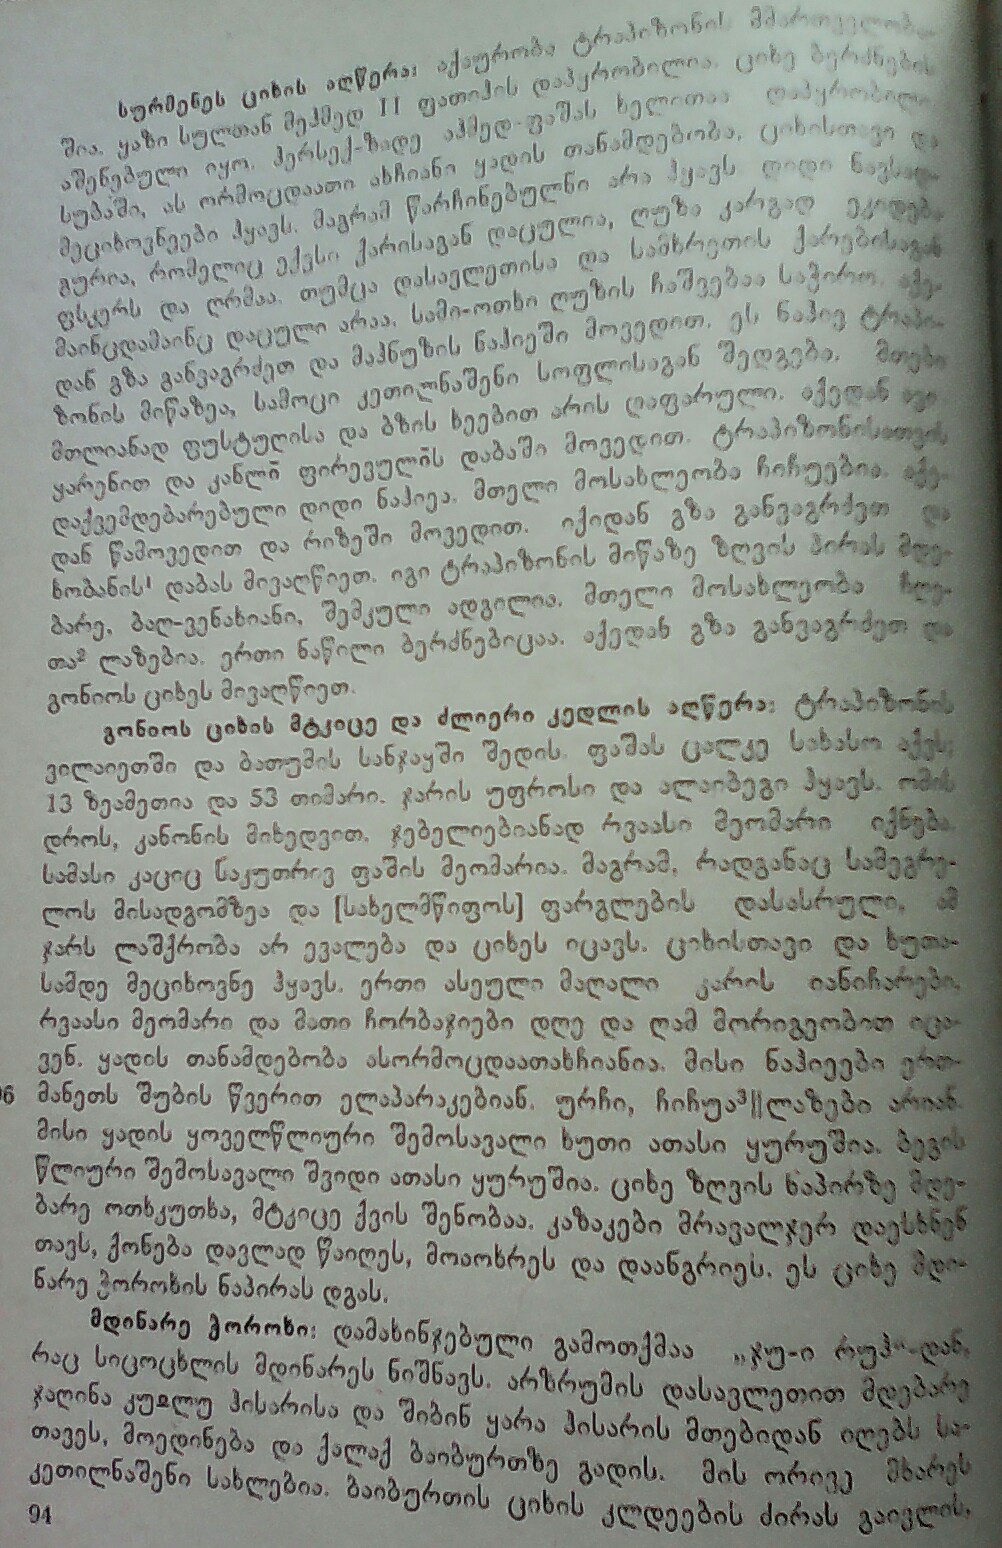 სურმენეს ციხის აღწერა: აქაურობა ტრაპიზონის მმართველობა-
შია. ყაზი სულთან მეჰმედ II ფათიჰის დაპყრობილია. ციხე ბერძნების
აშენებული იყო. ჰერსექ-ზადე აჰმედ-ფაშას ხელითაა დაპყრობილი
სუბაში, ას ორმოცდაათი ახჩიანი ყადის თანამდებობა, ციხისთავი და
მეციხოვნეები ჰყავს. მაგრამ წარჩინებულნი არა ჰყავს დიდი ნავსად-
გურია, რომელიც ექვსი ქარისაგან დაცულია, ღუზა კარგად ეკიდება
ფსკერს და ღრმაა. თუმცა დასავლეთისა და სამხრეთის ქარებისაგან
მაინცდამაინც დაცული არაა. სამი-ოთხი ღუზის ჩაშვებაა საჭირო. აქე-
დან გზა განვაგრძეთ და მაჰნუზის ნაჰიეში მოვედით. ეს ნაჰიე ტრაპი-
ზონის მიწაზეა, სამოცი კეთილნაშენი სოფლისაგან შედგება. მთები
მთლიანად ფუსტუღისა და ბზის ხეებით არის დაფარული. აქედან
ყარენით და კანლი ფირევულის დაბაში მოვედით. ტრაპიზონისათვის
დაქვემდებარებული დიდი ნაჰიეა. მთელი მოსახლეობა ჩიჩუებია. აქე-
დან წამოვედით და რიზეში მოვედით. იქიდან გზა განვაგრძეთ და
ხობანის¹ დაბას მივაღწიეთ. იგი ტრაპიზონის მიწაზე ზღვის პირას მდე-
ბარე, ბაღ-ვენახიანი, შემკული ადგილია. მთელი მოსახლეობა ჩლე-
თა² ლაზებია. ერთი ნაწილი ბერძნებიცაა. აქედან გზა განვაგრძეთ და
გონიოს ციხეს მივაღწიეთ.
გონიოს ციხის მტკიცე და ძლიერი კედლის აღწერა: ტრაპიზონის
ვილაიეთში და ბათუმის სანჯაყში შედის. ფაშას ცალკე სახასო აქვს;
13 ზეამეთია და 53 თიმარი. ჯარის უფროსი და ალაიბეგი ჰყავს. ომის
დროს, კანონის მიხედვით, ჯებელიებიანად რვაასი მეომარი იქნება.
სამასი კაციც საკუთრივ ფაშის მეომარია. მაგრამ, რადგანაც სამეგრე-
ლოს მისადგომზეა და [სახელმწიფოს] ფარგლების დასასრული, ამ
ჯარს ლაშქრობა არ ევალება და ციხეს იცავს. ციხისთავი და ხუთა-
სამდე მეციხოვნე ჰყავს. ერთი ასეული მაღალი კარის იანიჩარები,
რვაასი მეომარი და მათი ჩორბაჯიები დღე და ღამ მორიგეობით იცა-
ვენ. ყადის თანამდებობა ასორმოცდაათახჩიანია. მისი ნაჰიეები ერთ-
მანეთს შუბის წვერით ელაპარაკებიან. ურჩი, ჩიჩუა³||ლაზები არიან.
მისი ყადის ყოველწლიური შემოსავალი ხუთი ათასი ყურუშია. ბეგის
წლიური შემოსავალი შვიდი ათასი ყურუშია. ციხე ზღვის ნაპირზე მდე-
ბარე ოთხკუთხა, მტკიცე ქვის შენობაა. კაზაკები მრავალჯერ დაესხნენ
თავს, ქონება დავლად წაიღეს, მოაოხრეს და დაანგრიეს. ეს ციხე მდი-
ნარე ჭოროხის ნაპირას დგას.
მდინარე ჭოროხი: დამახინჯებული გამოთქმაა „ჯუ-ი რუჰ“-დან,
რაც სიცოცხლის მდინარეს ნიშნავს. არზრუმის დასავლეთით მდებარე
ჯაღინა კუჲლუ ჰისარისა და შიბინ ყარა ჰისარის მთებიდან იღებს სა-
თავეს, მოედინება და ქალაქ ბაიბურთზე გადის. მის ორივე მხარეს
კეთილნაშენი სახლებია. ბაიბურთის ციხის კლდეების ძირას გაივლის,
94